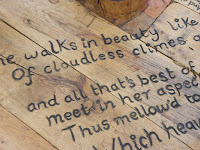 walks in beauty, like
Of cloudless climes,
and all that's best of
meet in her aspe
Thus mellowd to
Which heav